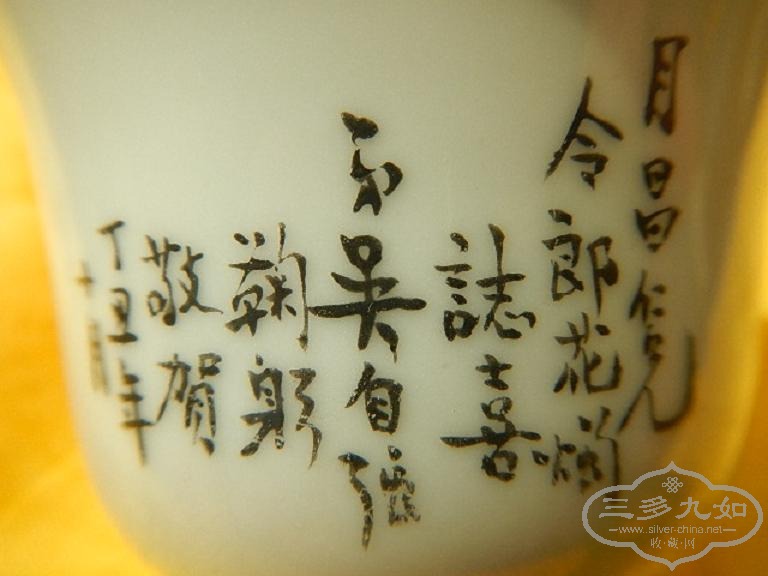 月昌仁兄
令郎花燭
誌喜
弟吳自強
鞠躬
敬賀
丁丑年
十
三多九如
www.silver-china.net
收·藏·网